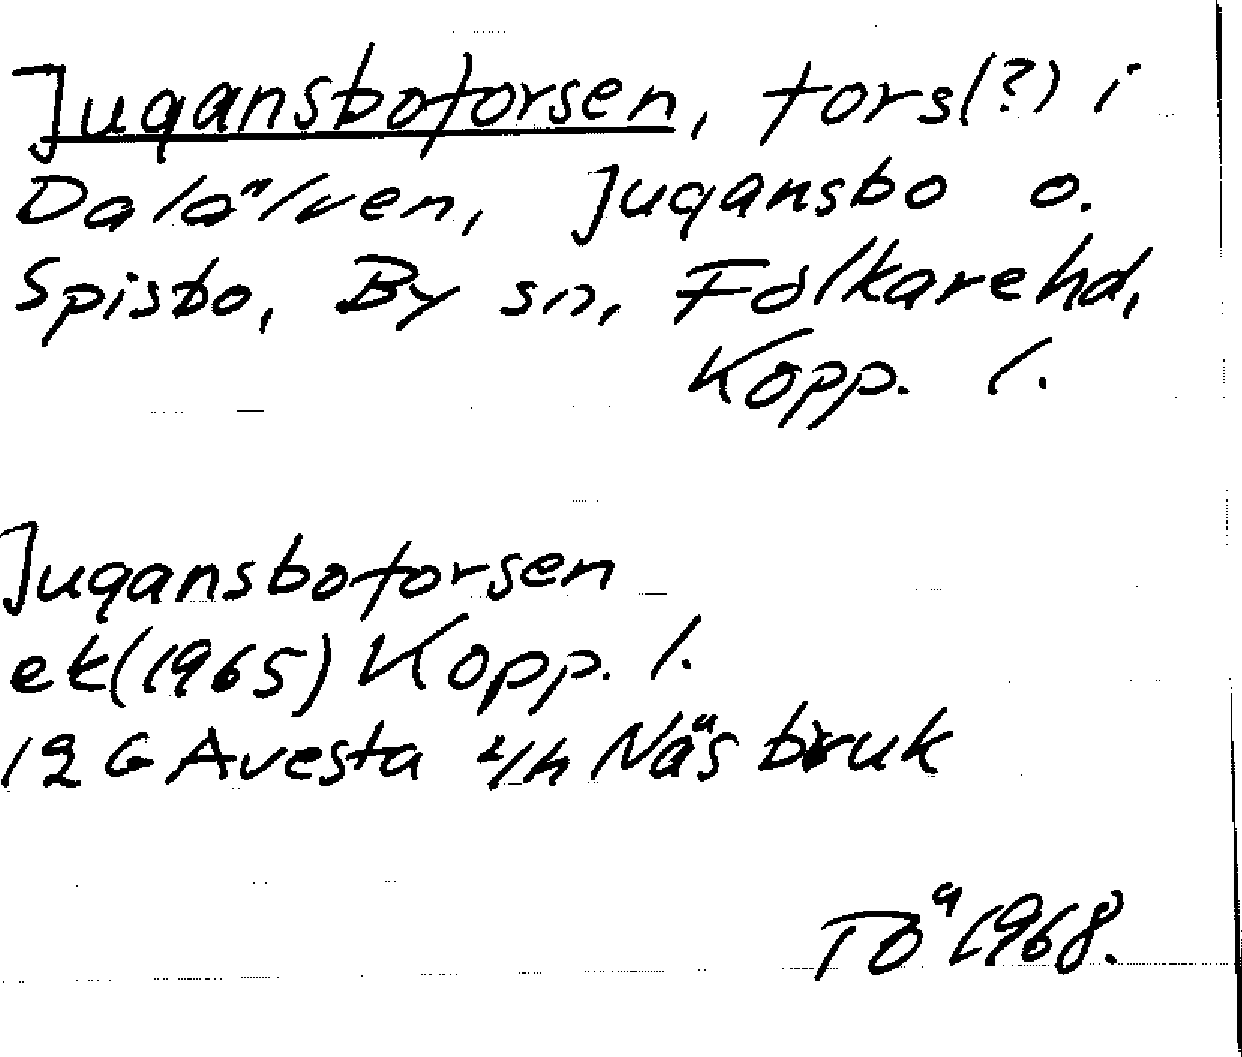 Jugansboforsen, fors(?) i
Dalälven, Jugansbo o.
Spisbo, By sn, Folkare hd,
Kopp. l.
Jugansboforsen
ek(1965) Kopp. l.
12 G Avesta 4/h Näs bruk
TÖ 1968.